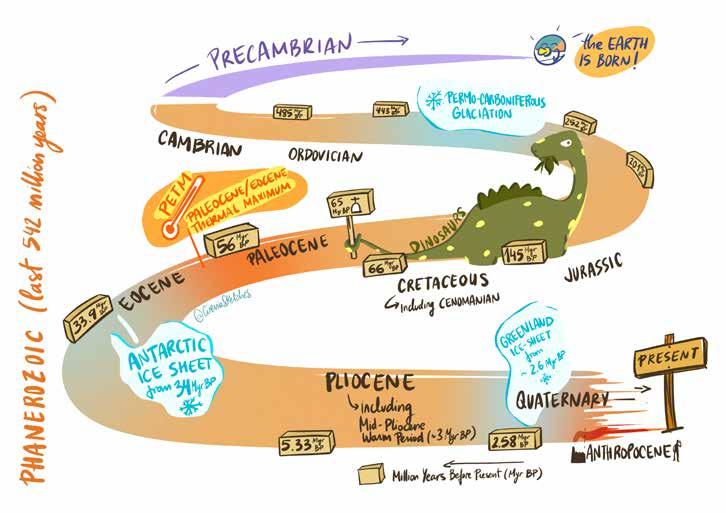 PHANEROZOIC (last 542 million years)
PRECAMBRIAN
the EARTH
IS BORN!
485 Myr BP
443 Myr BP
PERMO-CARBONIFEROUS
GLACIATION
252 Myr BP
201
CAMBRIAN
ORDOVICIAN
PETM
PALEOCENE/EOCENE
THERMAL MAXIMUM
65
Myr BP
56 Myr BP
PALEOCENE
DINOSAURS
66 Myr BP
145 Myr BP
CRETACEOUS
including CENOMANIAN
JURASSIC
EOCENE
33.9 Myr BP
ANTARCTIC
ICE SHEET
from 34 Myr BP
GREENLAND
ICE-SHEET
from
~ 2.6 Myr BP
PRESENT
PLIOCENE
including
Mid-Pliocene
Warm Period (~3 Myr BP)
QUATERNARY
5.33 Myr BP
2.58 Myr BP
ANTHROPOCENE
Million Years Before Present (Myr BP)